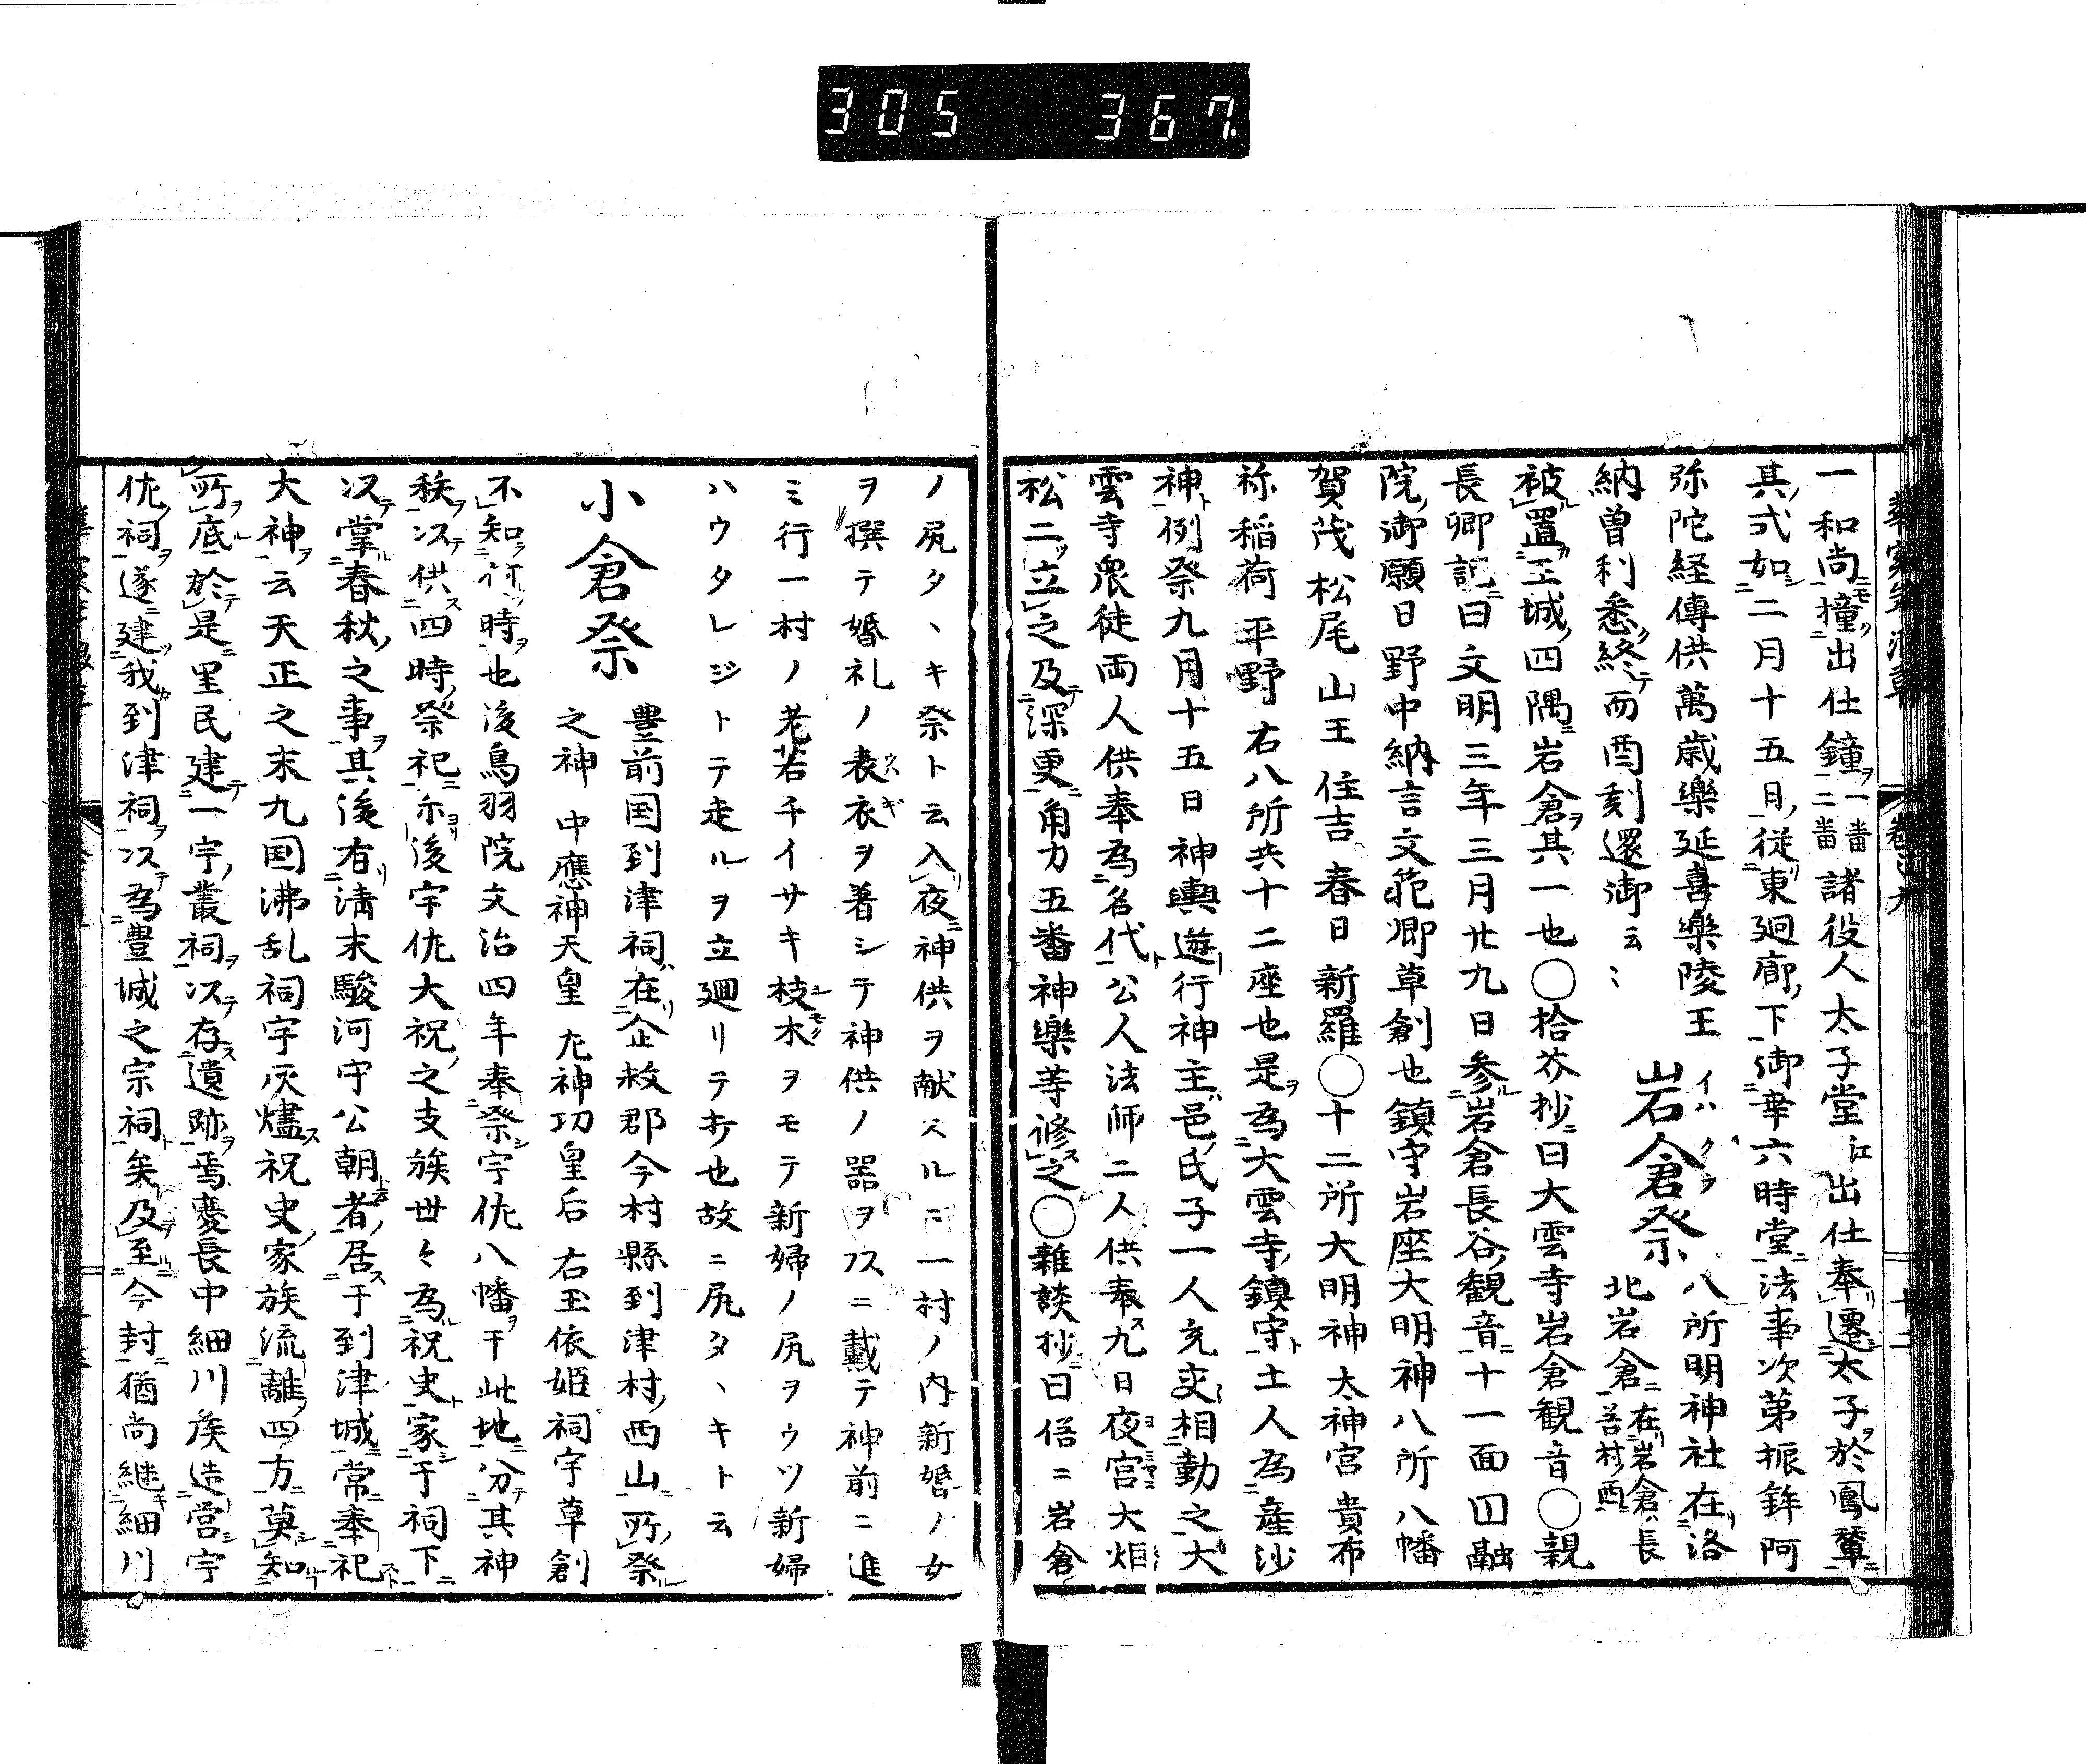 305 367
一和尚撞出仕鐘 一番 二番 諸役人太子堂江出仕奉遷太子於鳳輦
其式如二月十五日從東廻廊下御幸六時堂法事次第振鉾阿
弥陀経傳供萬歳樂延喜樂陵王
納曽利悉終而酉刻還御云々
岩倉祭
イハクラ
八所明神社在洛
北岩倉 在岩倉長谷村西
被置王城四隅岩倉其一也〇拾芥抄曰大雲寺岩倉観音〇親
長卿記曰文明三年三月廿九日参岩倉長谷観音十一面四融
院御願日野中納言文範卿草創也鎮守岩座大明神八所八幡
賀茂松尾山王住吉春日新羅〇十二所大明神太神宮貴布
祢稲荷平野右八所共十二座也是為大雲寺鎮守土人為産沙
神例祭九月十五日神輿遊行神主邑氏子一人充交相勤之大
雲寺衆徒両人供奉為名代公人法師二人供奉九日夜宮大炬
松二立之及深更角力五番神樂等修之〇雑談抄曰俗ニ岩倉
ノ尻タヽキ祭ト云入夜神供ヲ献スルニ一村ノ内新婚ノ女
ヲ撰テ婚礼ノ表衣ヲ着シテ神供ノ器ヲ頂ニ戴テ神前ニ進
ミ行一村ノ老若チイサキ枝木ヲモテ新婦ノ尻ヲウツ新婦
ハウタレジトテ走ルヲ立廻リテ打也故ニ尻タヽキト云
小倉祭
豊前国到津祠在企救郡今村縣到津村西山所祭
之神 中應神天皇 左神功皇后 右玉依姫祠宇草創
不知何時也後鳥羽院文治四年奉祭宇佐八幡于此地分其神
秩次供四時祭祀尓後宇佐大祝之支族世々為祝史家于祠下
次掌春秋之事其後有清末駿河守公朝者居于到津城常奉祀
大神云天正之末九国沸乱祠宇灰燼祝史家族流離四方莫知
所底於是里民建一宇叢祠次存遺跡焉慶長中細川侯造営宇
佐祠遂建我到津祠次為豊城之宗祠矣及至今封猶尚継細川